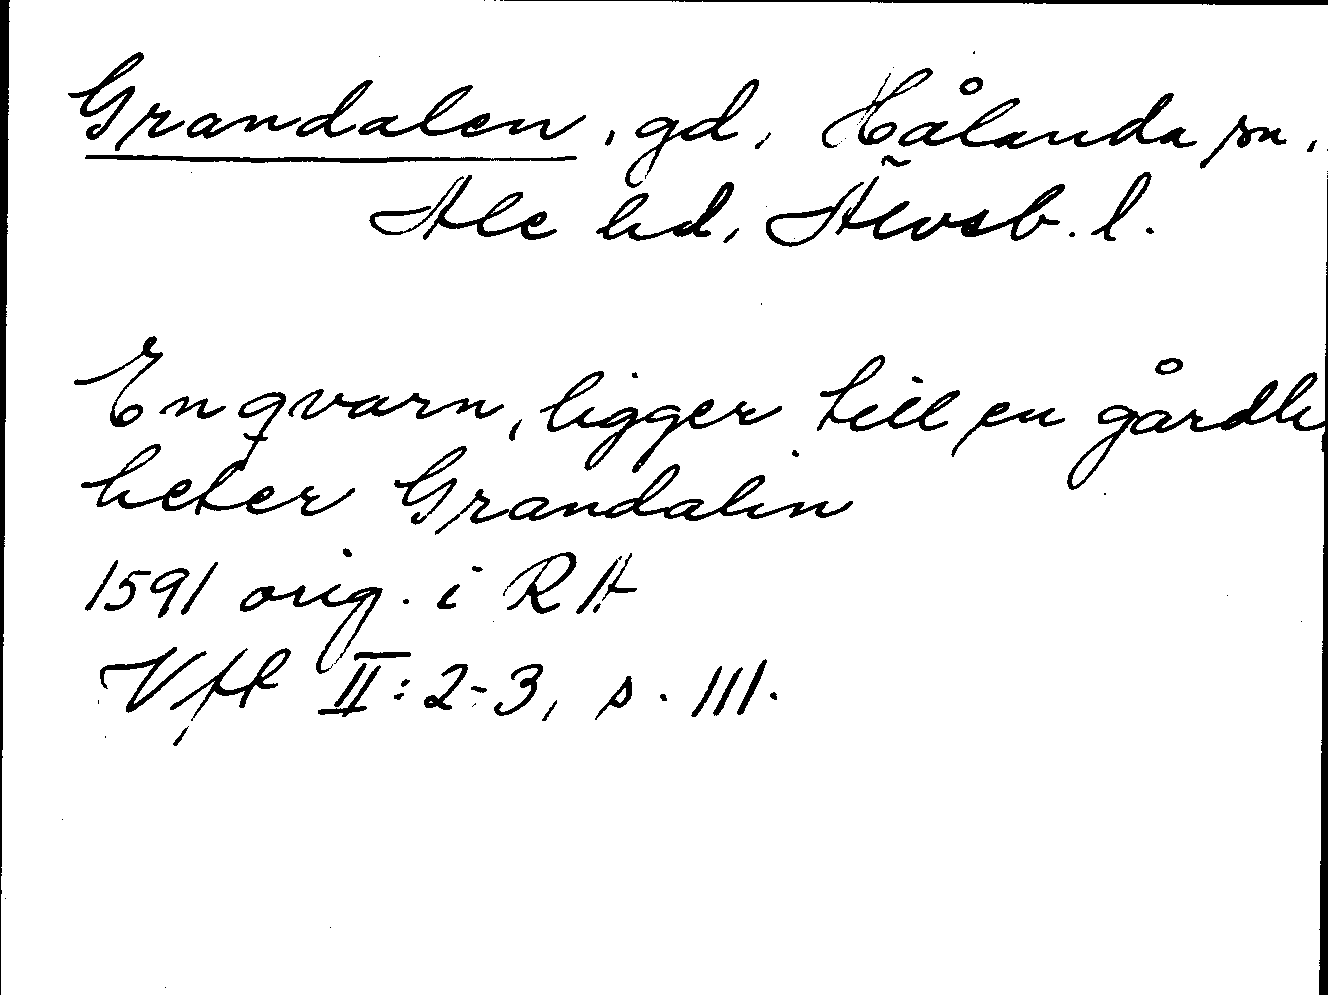 Grandalen, gd, Hålanda sn,
Ale hd, Älvsb. l.
En qvarn, ligger till en gårdh
heter Grandalin
1591 orig. i RA
Vff II: 2-3, s. 111.